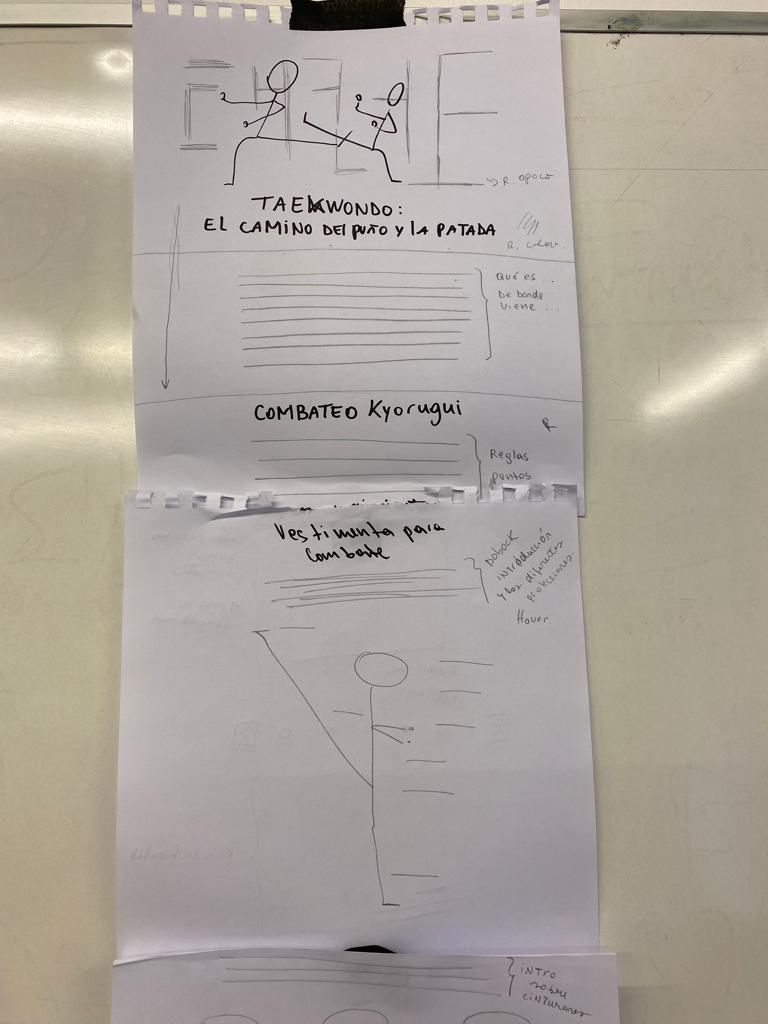 → R. opaco
TAEKWONDO:
EL CAMINO DEL PUÑO Y LA PATADA
R. color.
Qué es ...
De donde
viene ...
COMBATEO Kyorugui
R
Reglas
puntos
Vestimenta para
Combate
Doback
INtroducción
y las diferentes
protecciones.
Hover
iNTro
sobre
ciNTurones